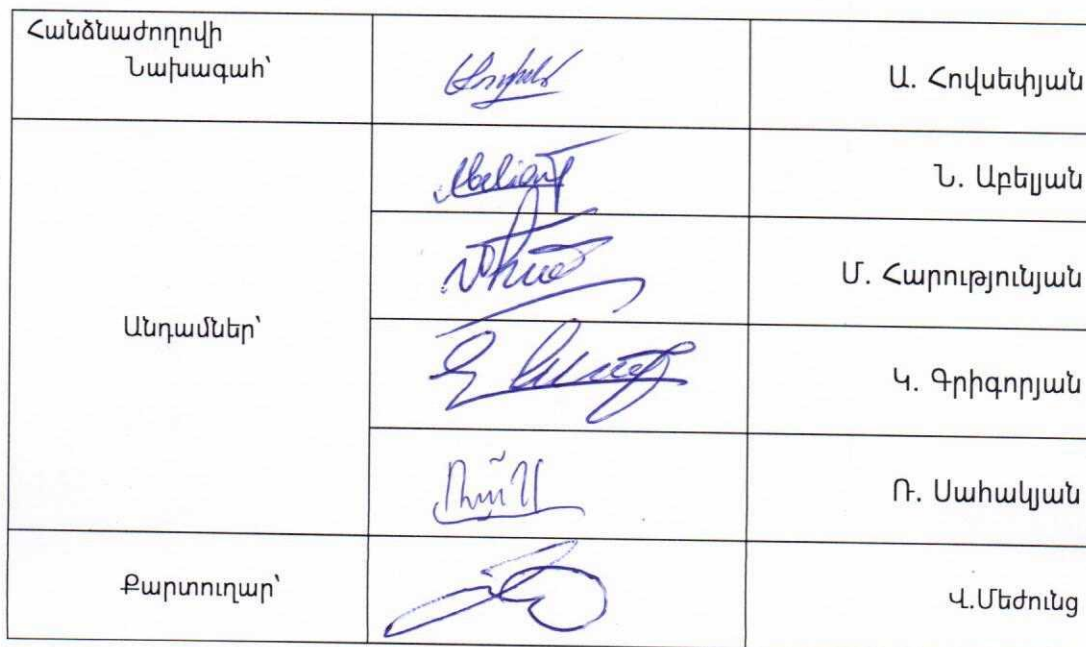 Հանձնաժողովի
Նախագահ՝
Ա. Հովսեփյան
Ն. Աբելյան
Մ. Հարությունյան
Անդամներ՝
Կ. Գրիգորյան
Ռ. Սահակյան
Քարտուղար՝
Վ.Մեժունց